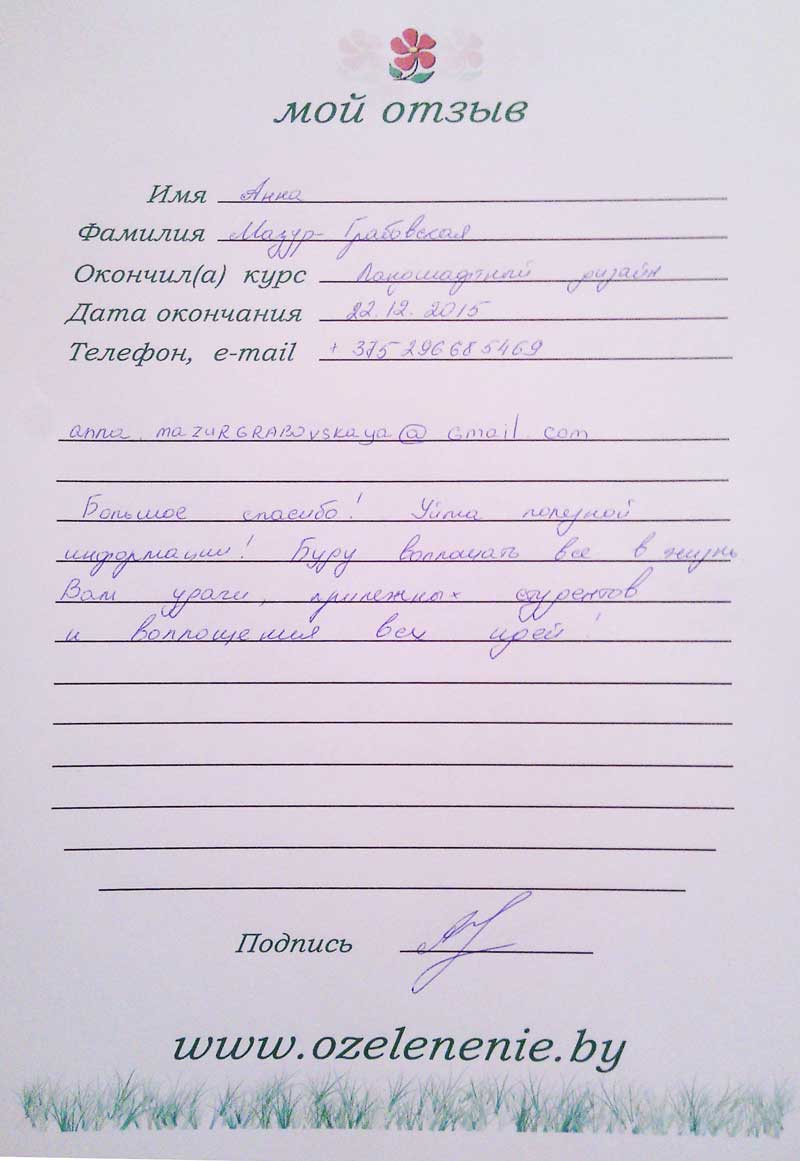 мой отзыв
Имя Анна
Фамилия Мазур-Грабовская
Окончил(а) курс Ландшафтный дизайн
Дата окончания 22.12.2015
Телефон, e-mail +375296685469
anna.mazurgrabovskaya@gmail.com
Большое спасибо! Уйма полезной
информации! Буду воплощать все в жизнь
Вам удачи, прилежных студентов
и воплощения всех идей!
Подпись
www.ozelenenie.by